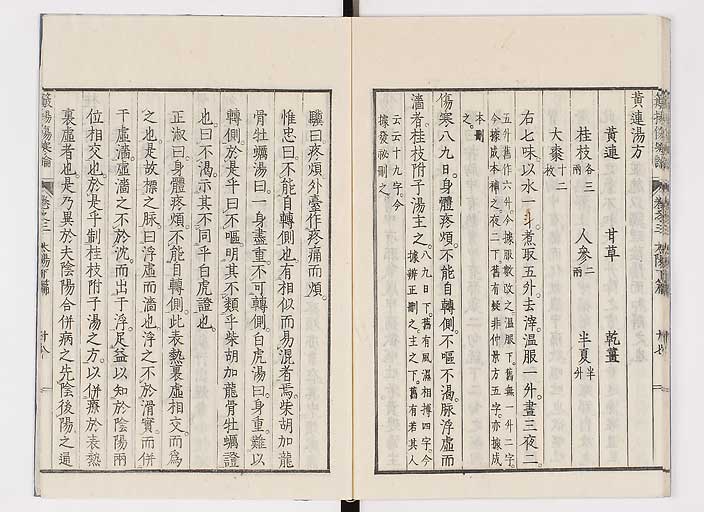 黄連湯方
黄連 甘草 乾薑
桂枝各三兩 人參二兩 半夏半升
大棗十二枚
右七味以水一斗煮取五升去滓溫服一升晝三夜二
五升舊作六升今據服數改之溫服下舊無一升二字
今據成本補之夜二下舊有疑非仲景方五字亦據成
本刪
之
傷寒八九日身體疼煩不能自轉側不嘔不渴脉浮虛而
濇者桂枝附子湯主之八九日下舊有風濕相搏四字今
據辨正刪之主之下舊有若其人
云云十九字今
據發祕刪之
驥曰疼煩外臺作疼痛而煩
惟忠曰不能自轉側也有相似而易混者焉柴胡加龍
骨牡蠣湯曰一身盡重不可轉側白虎湯曰身重難以
轉側於是乎曰不嘔明其不類乎柴胡加龍骨牡蠣證
也曰不渴示其不同乎白虎證也
正淑曰身體疼煩不能自轉側此表熱裏虛相交而爲
之也是故㩲之脉曰浮虛而濇也浮之不於滑實而併
于虛濇虛濇之不於沈而出于浮足益以知於陰陽兩
位相交也於是乎制桂枝附子湯之方以併療於表熱
裏虛者也是乃異於夫陰陽合併病之先陰後陽之逼
卷之三 太陽下篇